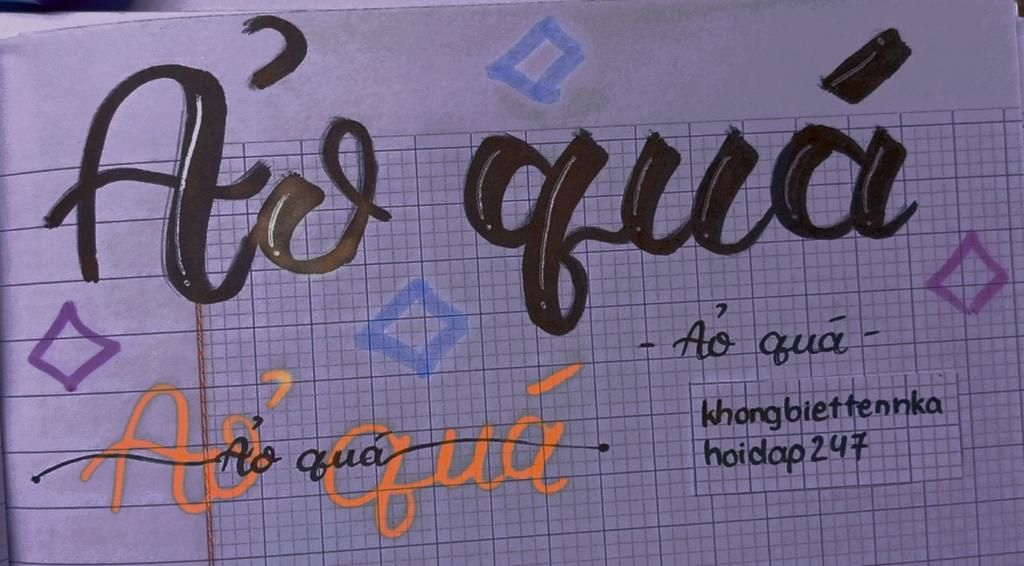 Ảo quá
- Ảo quá -
Ảo quá
Ảo quá
khongbiettennka
hoidap247